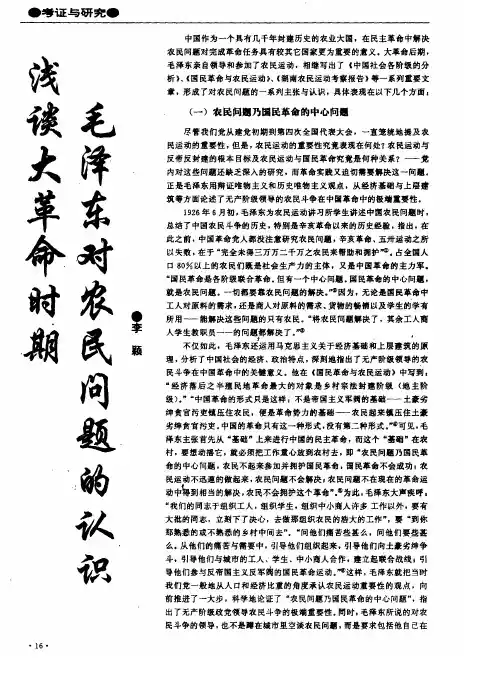 ●考证与研究●
浅谈大革命时期
毛泽东对农民问题的认识
●李 颖
中国作为一个具有几千年封建历史的农业大国，在民主革命中解决
农民问题对完成革命任务具有较其它国家更为重要的意义。大革命后期，
毛泽东亲自领导和参加了农民运动，相继写出了《中国社会各阶级的分
析》、《国民革命与农民运动》、《湖南农民运动考察报告》等一系列重要文
章，形成了对农民问题的一系列主张与认识，具体表现在以下几个方面：
（一）农民问题乃国民革命的中心问题
尽管我们党从建党初期到第四次全国代表大会，一直笼统地提及农
民运动的重要性，但是，农民运动的重要性究竟表现在何处？农民运动与
反帝反封建的根本目标及农民运动与国民革命究竟是何种关系？——党
内对这些问题还缺乏深入的研究，而革命实践又迫切需要解决这一问题。
正是毛泽东用辩证唯物主义和历史唯物主义观点，从经济基础与上层建
筑等方面论述了无产阶级领导的农民斗争在中国革命中的极端重要性。
1926年6月初，毛泽东为农民运动讲习所学生讲述中国农民问题时，
总结了中国农民斗争的历史，特别是辛亥革命以来的历史经验，指出，在
此之前，中国革命党人都没注意研究农民问题，辛亥革命、五卅运动之所
以失败，在于“完全未得三万万二千万之农民来帮助和拥护”①。占全国人
口80%以上的农民们既是社会生产力的主体，又是中国革命的主力军。
“国民革命是各阶级联合革命，但有一个中心问题。国民革命的中心问题，
就是农民问题。一切都要靠农民问题的解决。”②因为，无论是国民革命中
工人对原料的需求，还是商人对原料的需求、货物的畅销以及学生的学有
所用——能解决这些问题的只有农民。“将农民问题解决了，其余工人商
人学生教职员一一的问题都解决了。”③
不仅如此，毛泽东还运用马克思主义关于经济基础和上层建筑的原
理，分析了中国社会的经济、政治特点，深刻地指出了无产阶级领导的农
民斗争在中国革命中的关键意义。他在《国民革命与农民运动》中写到：
“经济落后之半殖民地革命最大的对象是乡村宗法封建阶级（地主阶
级）。”“中国革命的形式只是这样：不是帝国主义军阀的基础——土豪劣
绅贪官污吏镇压住农民，便是革命势力的基础——农民起来镇压住土豪
劣绅贪官污吏。中国的革命只有这一种形式，没有第二种形式。”④可见，毛
泽东主张首先从“基础”上来进行中国的民主革命，而这个“基础”在农
村，要想动摇它，就必须把工作重心放到农村去，即“农民问题乃国民革
命的中心问题，农民不起来参加并拥护国民革命，国民革命不会成功；农
民运动不迅速的做起来，农民问题不会解决；农民问题不在现在的革命运
动中得到相当的解决，农民不会拥护这个革命”。⑤为此，毛泽东大声疾呼：
“我们的同志于组织工人，组织学生，组织中小商人许多工作以外，要有
大批的同志，立刻下了决心，去做那组织农民的浩大的工作”，要“到你
那熟悉的或不熟悉的乡村中间去”。“问他们痛苦些甚么，问他们要些甚
么。从他们的痛苦与需要中，引导他们组织起来，引导他们向土豪劣绅争
斗，引导他们与城市的工人、学生、中小商人合作，建立起联合战线；引
导他们参与反帝国主义反军阀的国民革命运动。”⑥这样，毛泽东就把当时
我们党一般地从人口和经济比重的角度承认农民运动重要性的观点，向
前推进了一大步，科学地论证了“农民问题乃国民革命的中心问题”，指
出了无产阶级政党领导农民斗争的极端重要性。同时，毛泽东所说的对农
民斗争的领导，也不是蹲在城市里空谈农民问题，而是要求包括他自己在
·16·